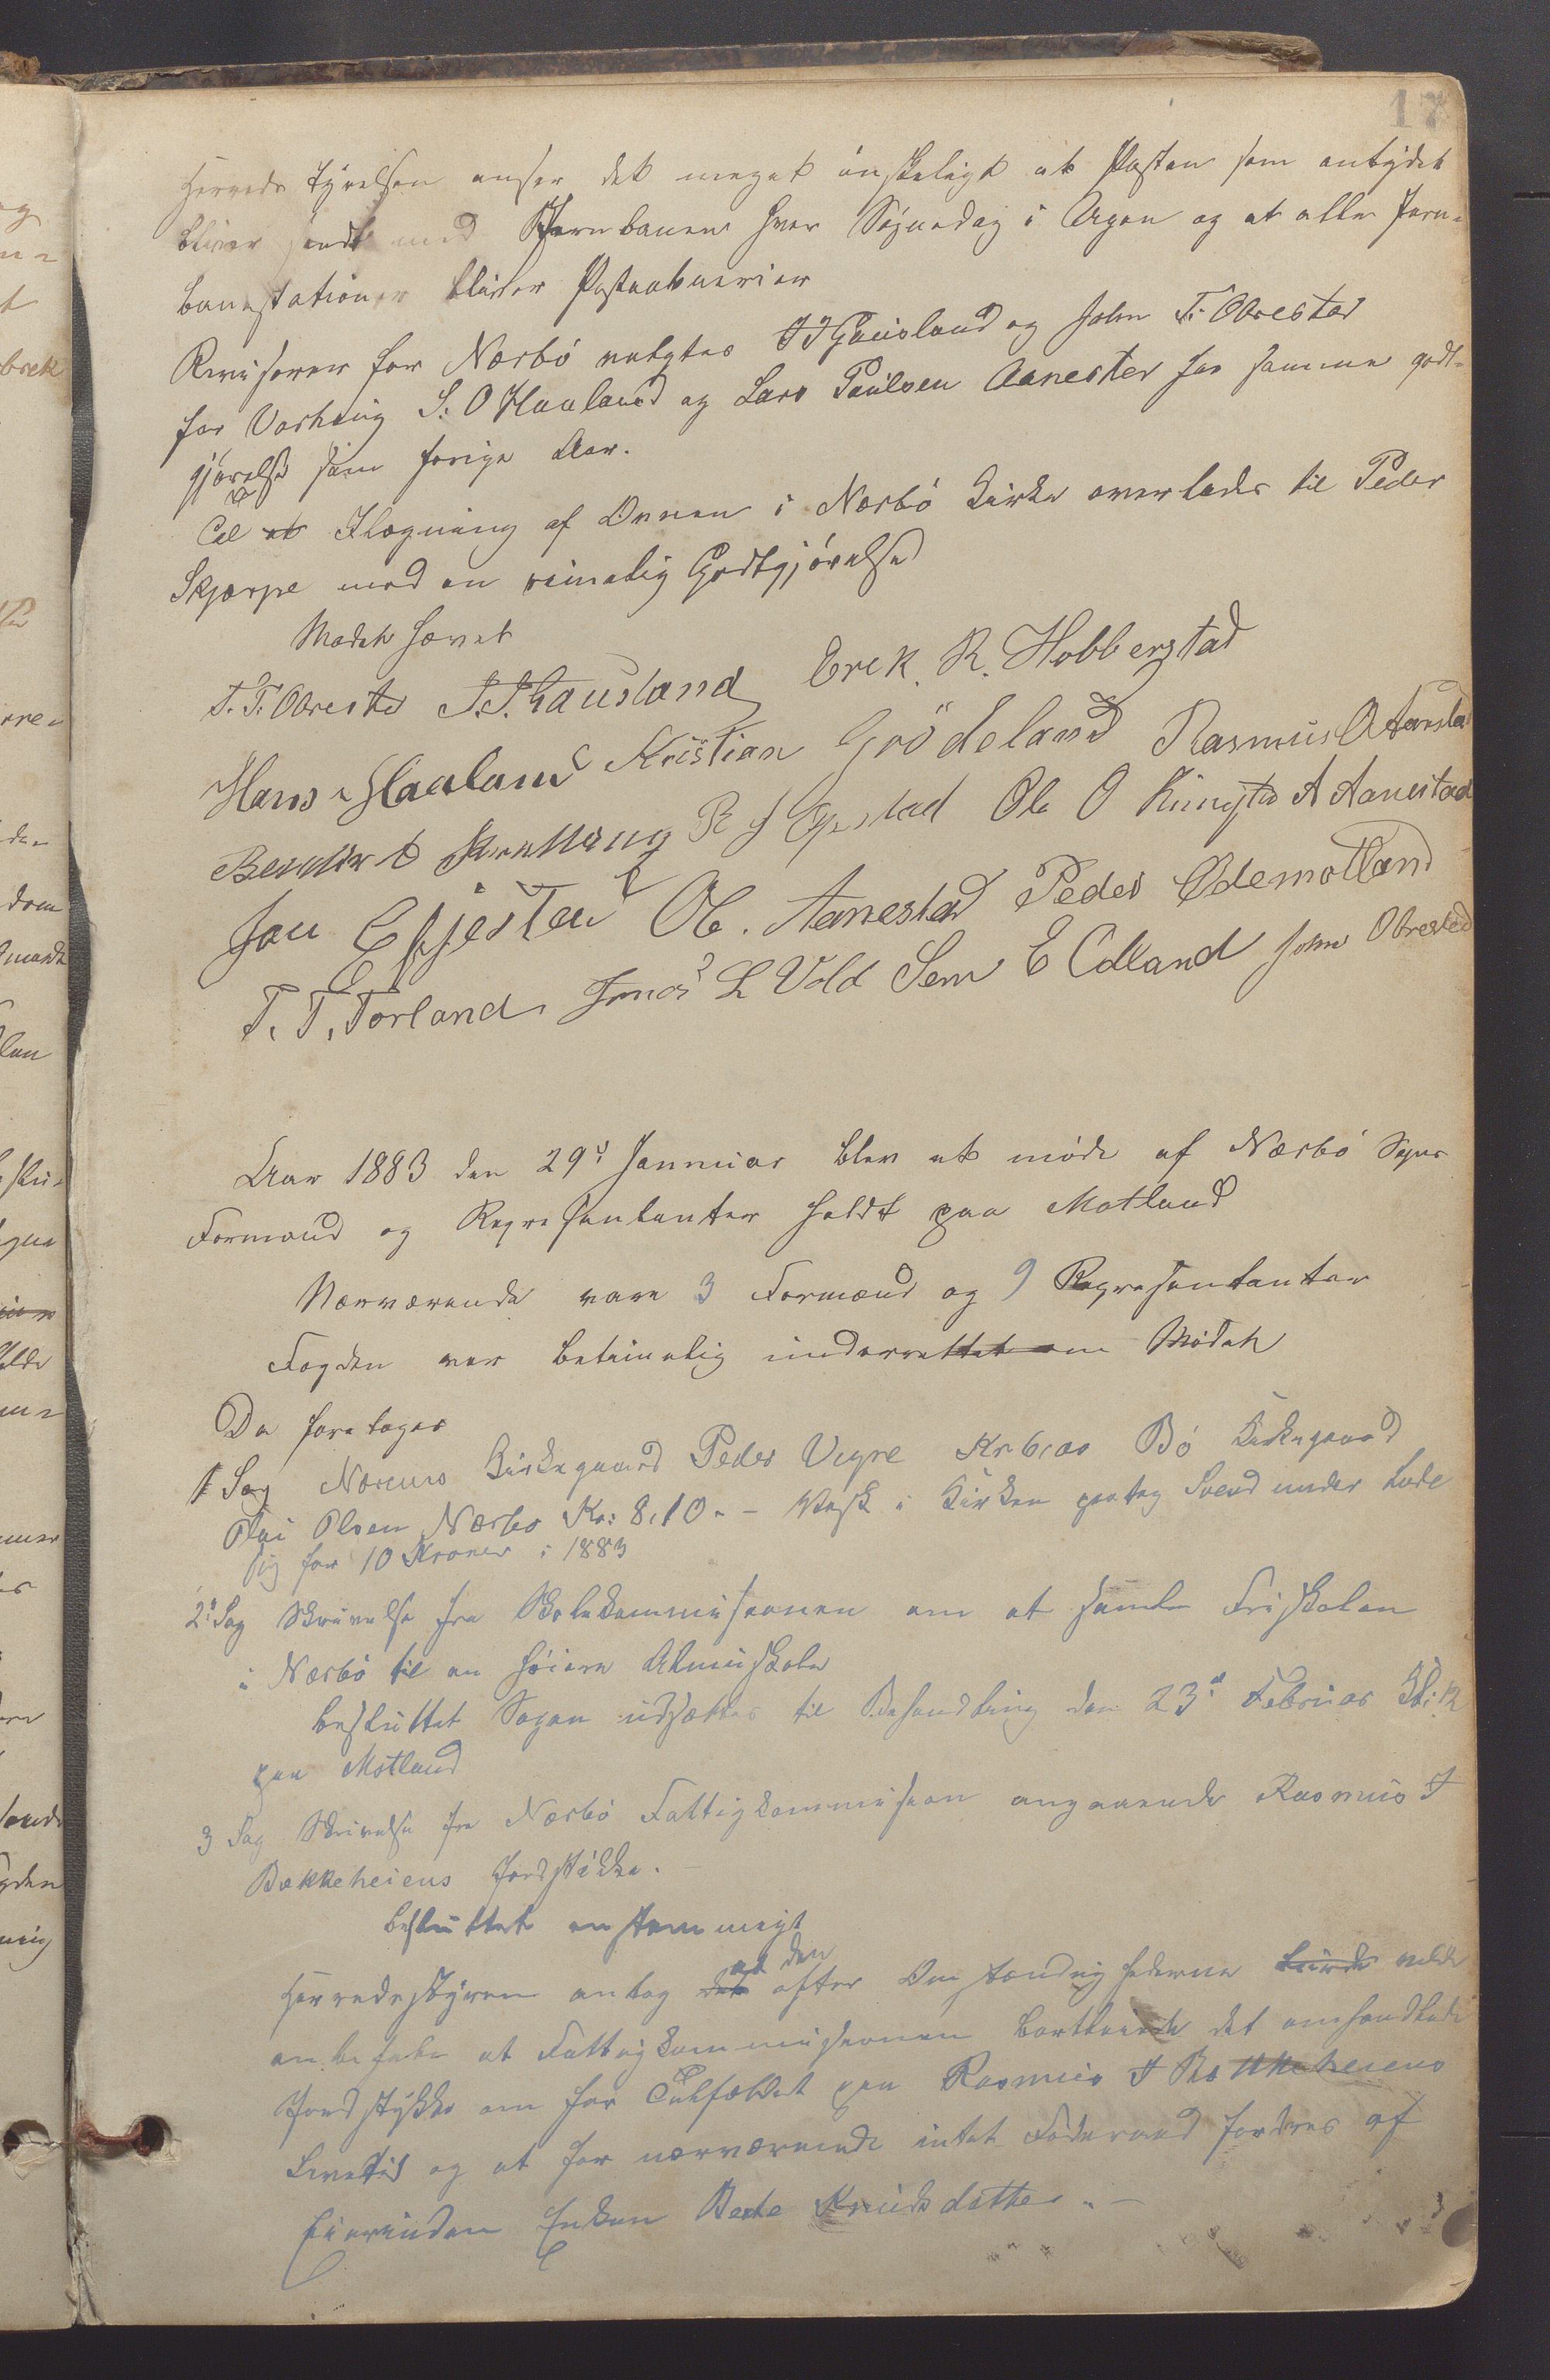 17
Herreds Styrelsen anser det meget ønskeligt at Posten som antydet
bliver sendt med Jernbanen hver Søgnedag i Ugen og at alle Jern-
banestationer bliver Postaabnerier
Revisorer for Nærbø valgtes J J Gausland og John T. Obrestad
for Varhaug S. O Haaland og Lars Paulsen Aanestad for samme godt-
gjørelse som forige Aar.
Til Ilægning af Ovnen i Nærbø Kirke overlades til Peder
Skjærpe mod en rimelig Godtgjørelse
Mødet hævet
T. T. Obrestad J. J. Gausland Erek. R. Hobberstad
Hans Haaland Kristian Grödeland Rasmus O Aanestad
R J Ole O A Aanestad
Jon Ole. Aanestad Peder Ødemotland
T. T. Torland Jonas L Vold Sem E Edland John Obrestad
Aar 1883 den 29d Januar blev et møde af Nærbø Sogns
Formænd og Repræsentanter holdt paa Motland
Nærværende vare 3 Formænd og 9 Repræsentanter
Fogden var betimelig underrettet om Mødet
Da foretoges
1 Sag Nærbø Kirkegaard Peder Vigre Kr 6,00 Bø Kirkegaard
Olai Olsen Nærbø Kr: 8,10. - Vask i Kirken paatog Svend under Lode
sig for 10 Kroner i 1883
2: Sag Skrivelse fra Skolekommisionen om at samle Friskolen
i Nærbø til en høiere Almuskole
besluttet Sagen udsættes til Behandling den 23d Februar Kl: 12
paa Motland
3 Sag Skrivelse fra Nærbø Fattigkommission angaaende Rasmus T
Bækkeheiens Jordstykke. -
besluttet enstemmigt
at den
Herredsstyren antog det efter Omstændighederne burde vilde
anbefale at Fattigkommissionen bortleiede det omhandlede
Jordstykke om for Tilfældet paa Rasmus T Bækkeheiens
Levetid og at for nærværende intet Føderaad fordres af
Eierinden Enken Berte Knudsdatter. -